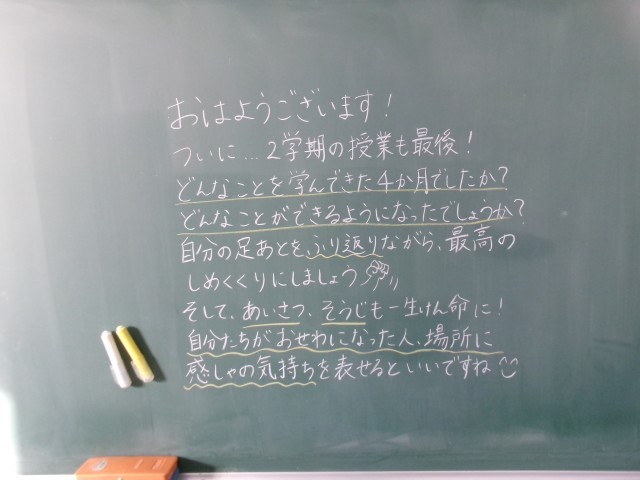 おはようございます！
ついに…2学期の授業も最後！
どんなことを学んできた4か月でしたか？
どんなことができるようになったでしょうか？
自分の足あとを、ふり返りながら、最高の
しめくくりにしましょう
そして、あいさつ、そうじも一生けん命に！
自分たちがおせわになった人、場所に
感しゃの気持ちを表せるといいですね